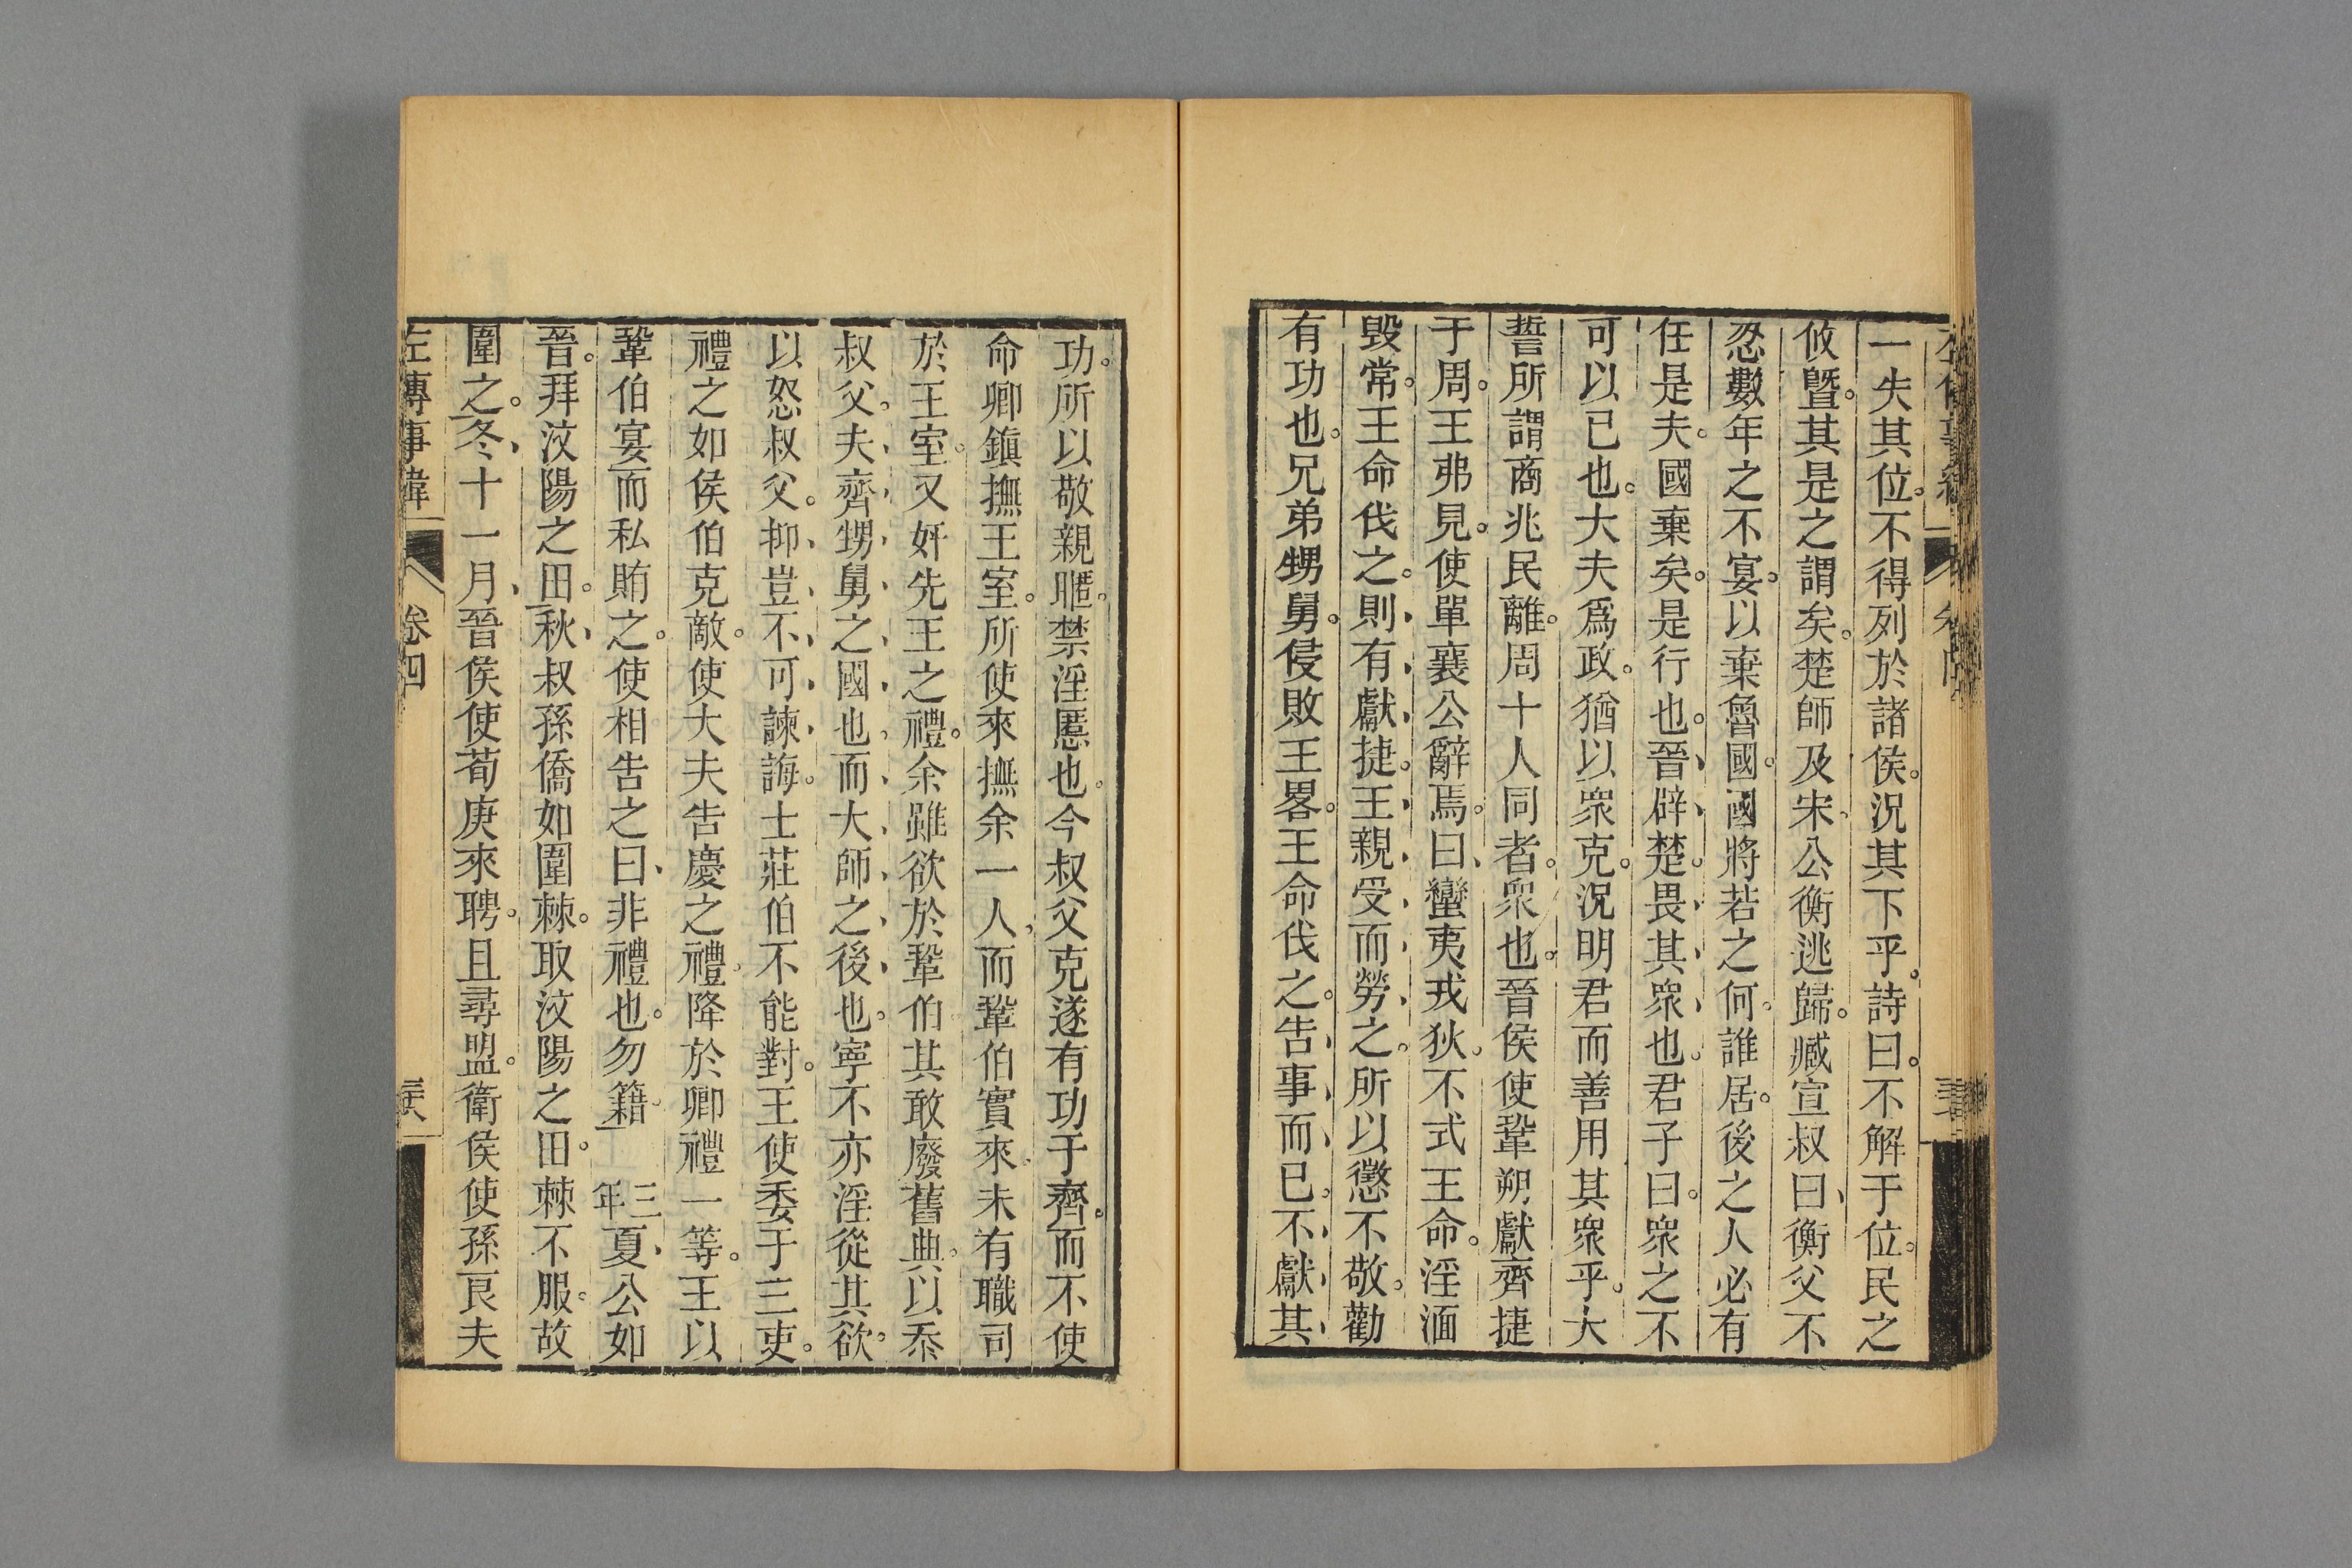 一失其位。不得列於諸侯。況其下乎。詩曰。不解于位。民之
攸曁。其是之謂矣。楚師及宋、公衡逃歸。臧宣叔曰、衡父不
忍數年之不宴。以棄魯國。國將若之何。誰居。後之人必有
任是夫。國棄矣。是行也。晉、辟、楚。畏、其、衆、也。君子曰。衆之不
可以已也。大夫爲政。猶以衆克。況明君而善用其衆乎。大
誓所謂商兆民離。周十人同者。衆也。晉侯使鞏朔獻齊捷
于周。王弗見。使單襄公辭焉。曰、蠻夷戎狄。不式王命。淫湎
毀常。王命伐之。則、有、獻、捷。王、親、受、而、勞、之。所以懲不敬。勸
有功也。兄弟甥舅。侵敗王畧。王命伐之。告、事、而、已。不、獻、其、
功。所以敬親暱。禁淫慝也。今叔父克遂有功于齊。而不使
命卿鎮撫王室。所使來撫余一人、而鞏伯實來。未有職司
於王室。又奸先王之禮。余雖欲於鞏伯。其敢廢舊典。以忝
叔父。夫、齊、甥、舅、之、國、也、而、大、師、之、後、也。寧不亦淫從其欲。
以怒叔父。抑、豈、不、可、諫、誨。士莊伯不能對。王使委于三吏。
禮之如侯伯克敵。使大夫告慶之禮。降於卿禮一等。王以
鞏伯宴而私賄之。使相告之曰、非禮也。勿籍。三年夏、公如
晉。拜汶陽之田。秋、叔孫僑如圍棘。取汶陽之田。棘不服。故
圍之。冬、十一月、晉侯使荀庚來聘。且尋盟。衛侯使孫良夫
左傳事緯 卷四